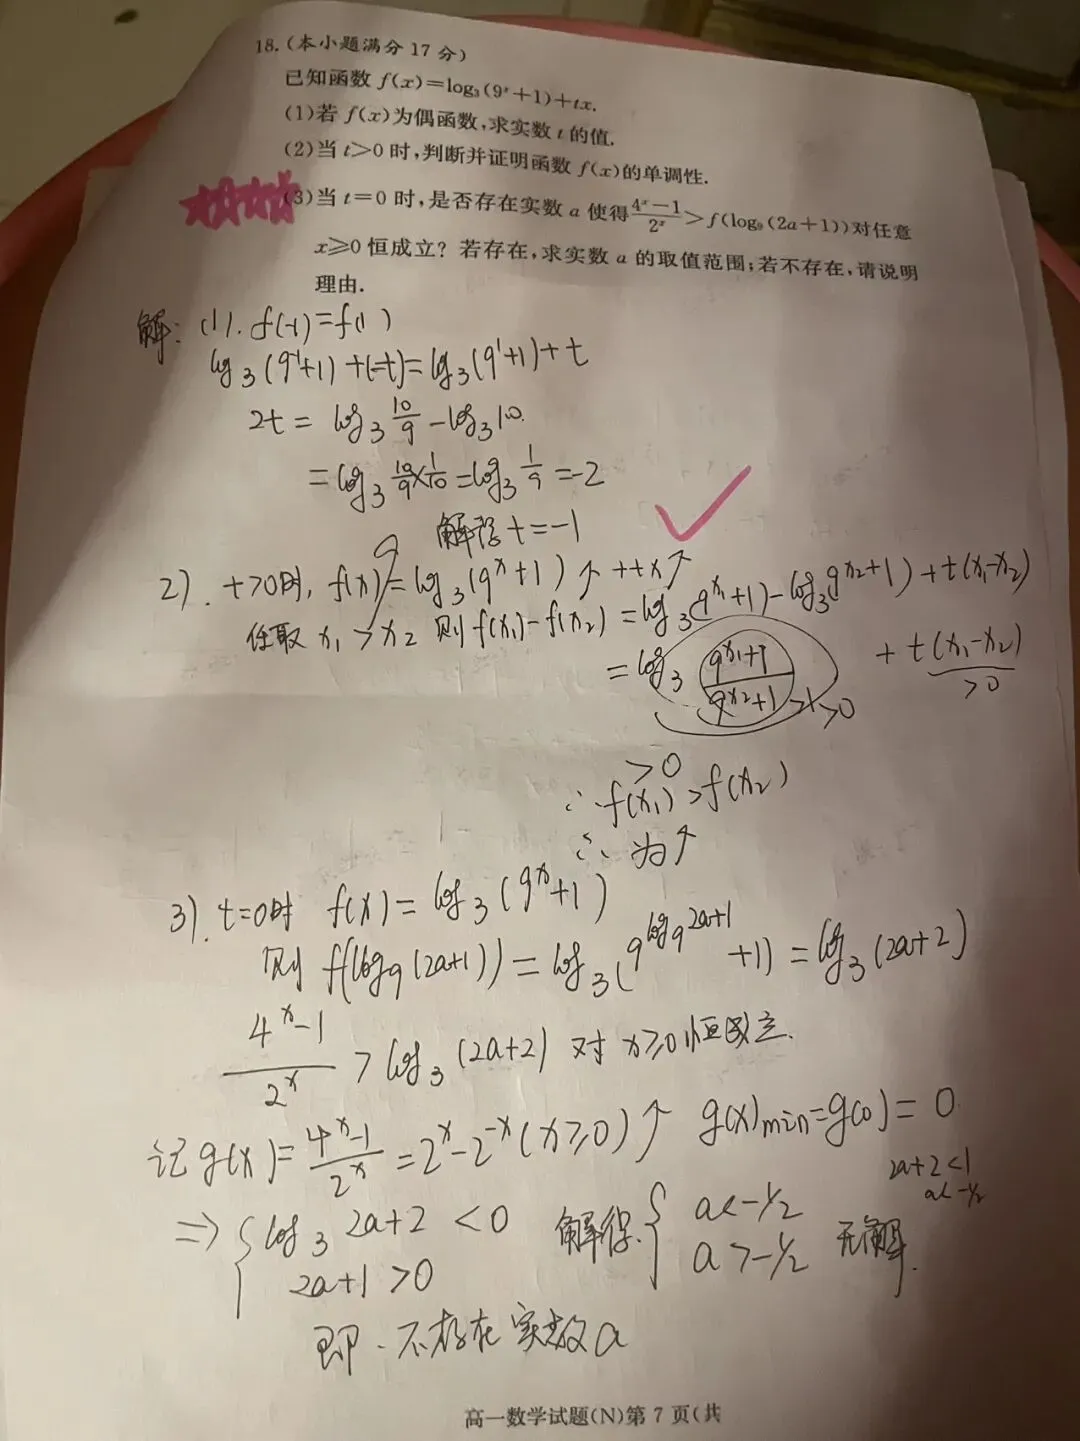 18.(本小题满分17分)
已知函数 f(x)=log₃(9ˣ+1)+tx.
(1)若 f(x)为偶函数,求实数 t 的值.
(2)当 t>0 时,判断并证明函数 f(x)的单调性.
(3)当 t=0 时,是否存在实数 a 使得(4ˣ−1)/2ˣ>f(log₉(2a+1))对任意
x≥0 恒成立?若存在,求实数 a 的取值范围;若不存在,请说明
理由.
解: (1). f(-1)=f(1)
log₃(9⁻¹+1)+(-t)=log₃(9¹+1)+t
2t = log₃ 10/9 - log₃10
= log₃ 10/9×1/10 = log₃ 1/9 = -2
解得 t=-1
2). t>0时, f(x)=log₃(9ˣ+1)↑ +tx↑
任取 x₁>x₂ 则 f(x₁)-f(x₂) = log₃(9^x₁+1)-log₃(9^x₂+1)+t(x₁-x₂)
= log₃ (9^x₁+1)/(9^x₂+1) >1 >0 + t(x₁-x₂) >0
>0
∴ f(x₁)>f(x₂)
∴ 为↑
3). t=0时 f(x)=log₃(9ˣ+1)
则 f(log₉(2a+1)) = log₃(9^log₉2a+1 +1) = log₃(2a+2)
(4ˣ-1)/2ˣ > log₃(2a+2) 对 x≥0恒成立.
记 g(x)=(4ˣ-1)/2ˣ=2ˣ-2⁻ˣ(x≥0)↑ g(x)min=g(0)=0
2a+2<1
a<-1/2
⇒ { log₃ 2a+2 <0 解得 { a<-1/2
2a+1>0 a>-1/2 无解.
即 · 不存在实数a
高一数学试题(N)第 7 页(共